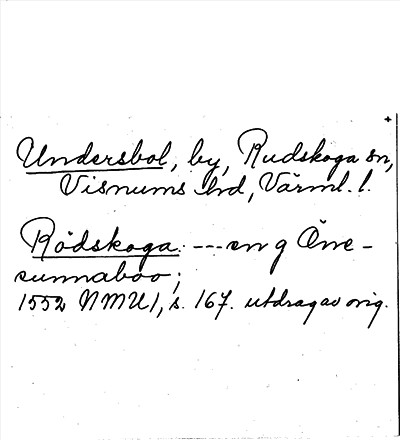 Undersbol, by, Rudskoga sn,
Visnums hd, Värml. l.
Rödskoga: --- en g Öne-
sunnaboo;
1552 NMU 1, s. 167. utdrag av orig.